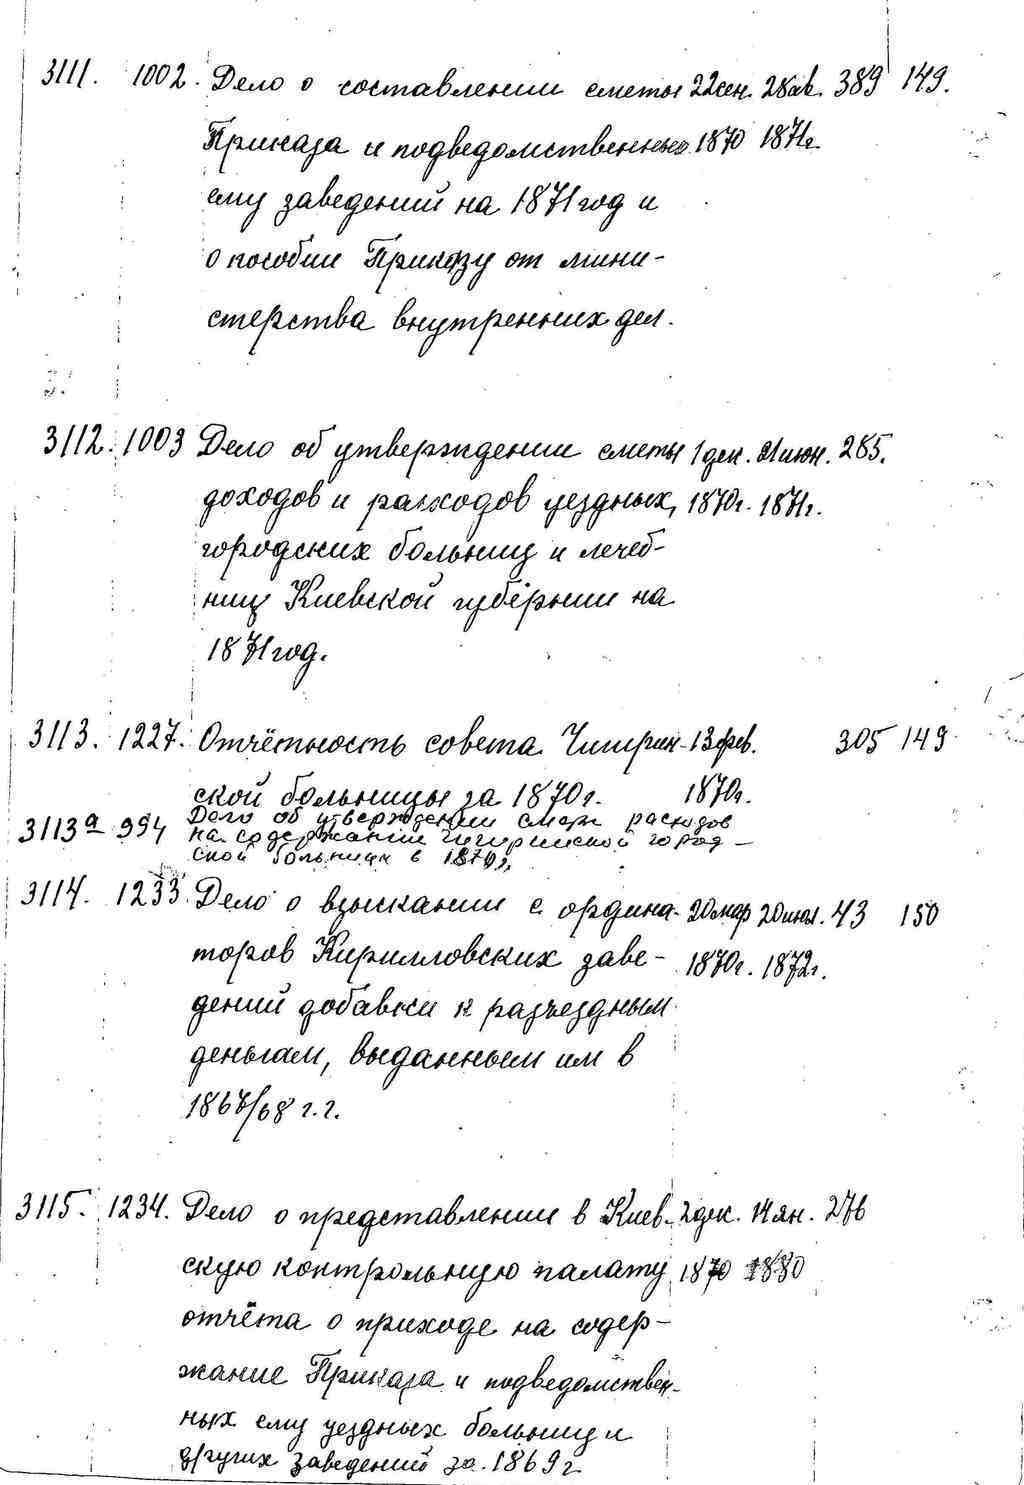 3111. 1002. Дело о составлении сметы 22 сен. 28 ав. 389 149.
Приказа и подведомственных 1870 1871г.
ему заведений на 1871 год и
о пособии Приказу от мини-
стерства внутренних дел.
3112. 1003 Дело об утверждении сметы 1 дек. 21 июн. 285.
доходов и расходов уездных, 1870г. 1871г.
городских больниц и лечеб-
ниц Киевской губернии на
1871 год.
3113. 1227. Отчётность совета Чигирин- 13 фев. 305 149
ской больницы за 1870г. 1870г.
3113а 994 Дело об утверждении сметы расходов
на содержание Чигиринской город-
ской больницы в 1870 г.
3114. 1233. Дело о взыскании с ордина- 20 мар 20 июл. 43 150
торов Кирилловских заве- 1870г. 1872г.
дений добавки к разъездным
деньгам, выданным им в
1867/68 г.г.
3115. 1234. Дело о представлении в Киев- 2 дек. 14 ян. 276
скую контрольную палату 1870 1880
отчёта о приходе на содер-
жание Приказа и подведомствен-
ных ему уездных больниц и
других заведений за 1869 г